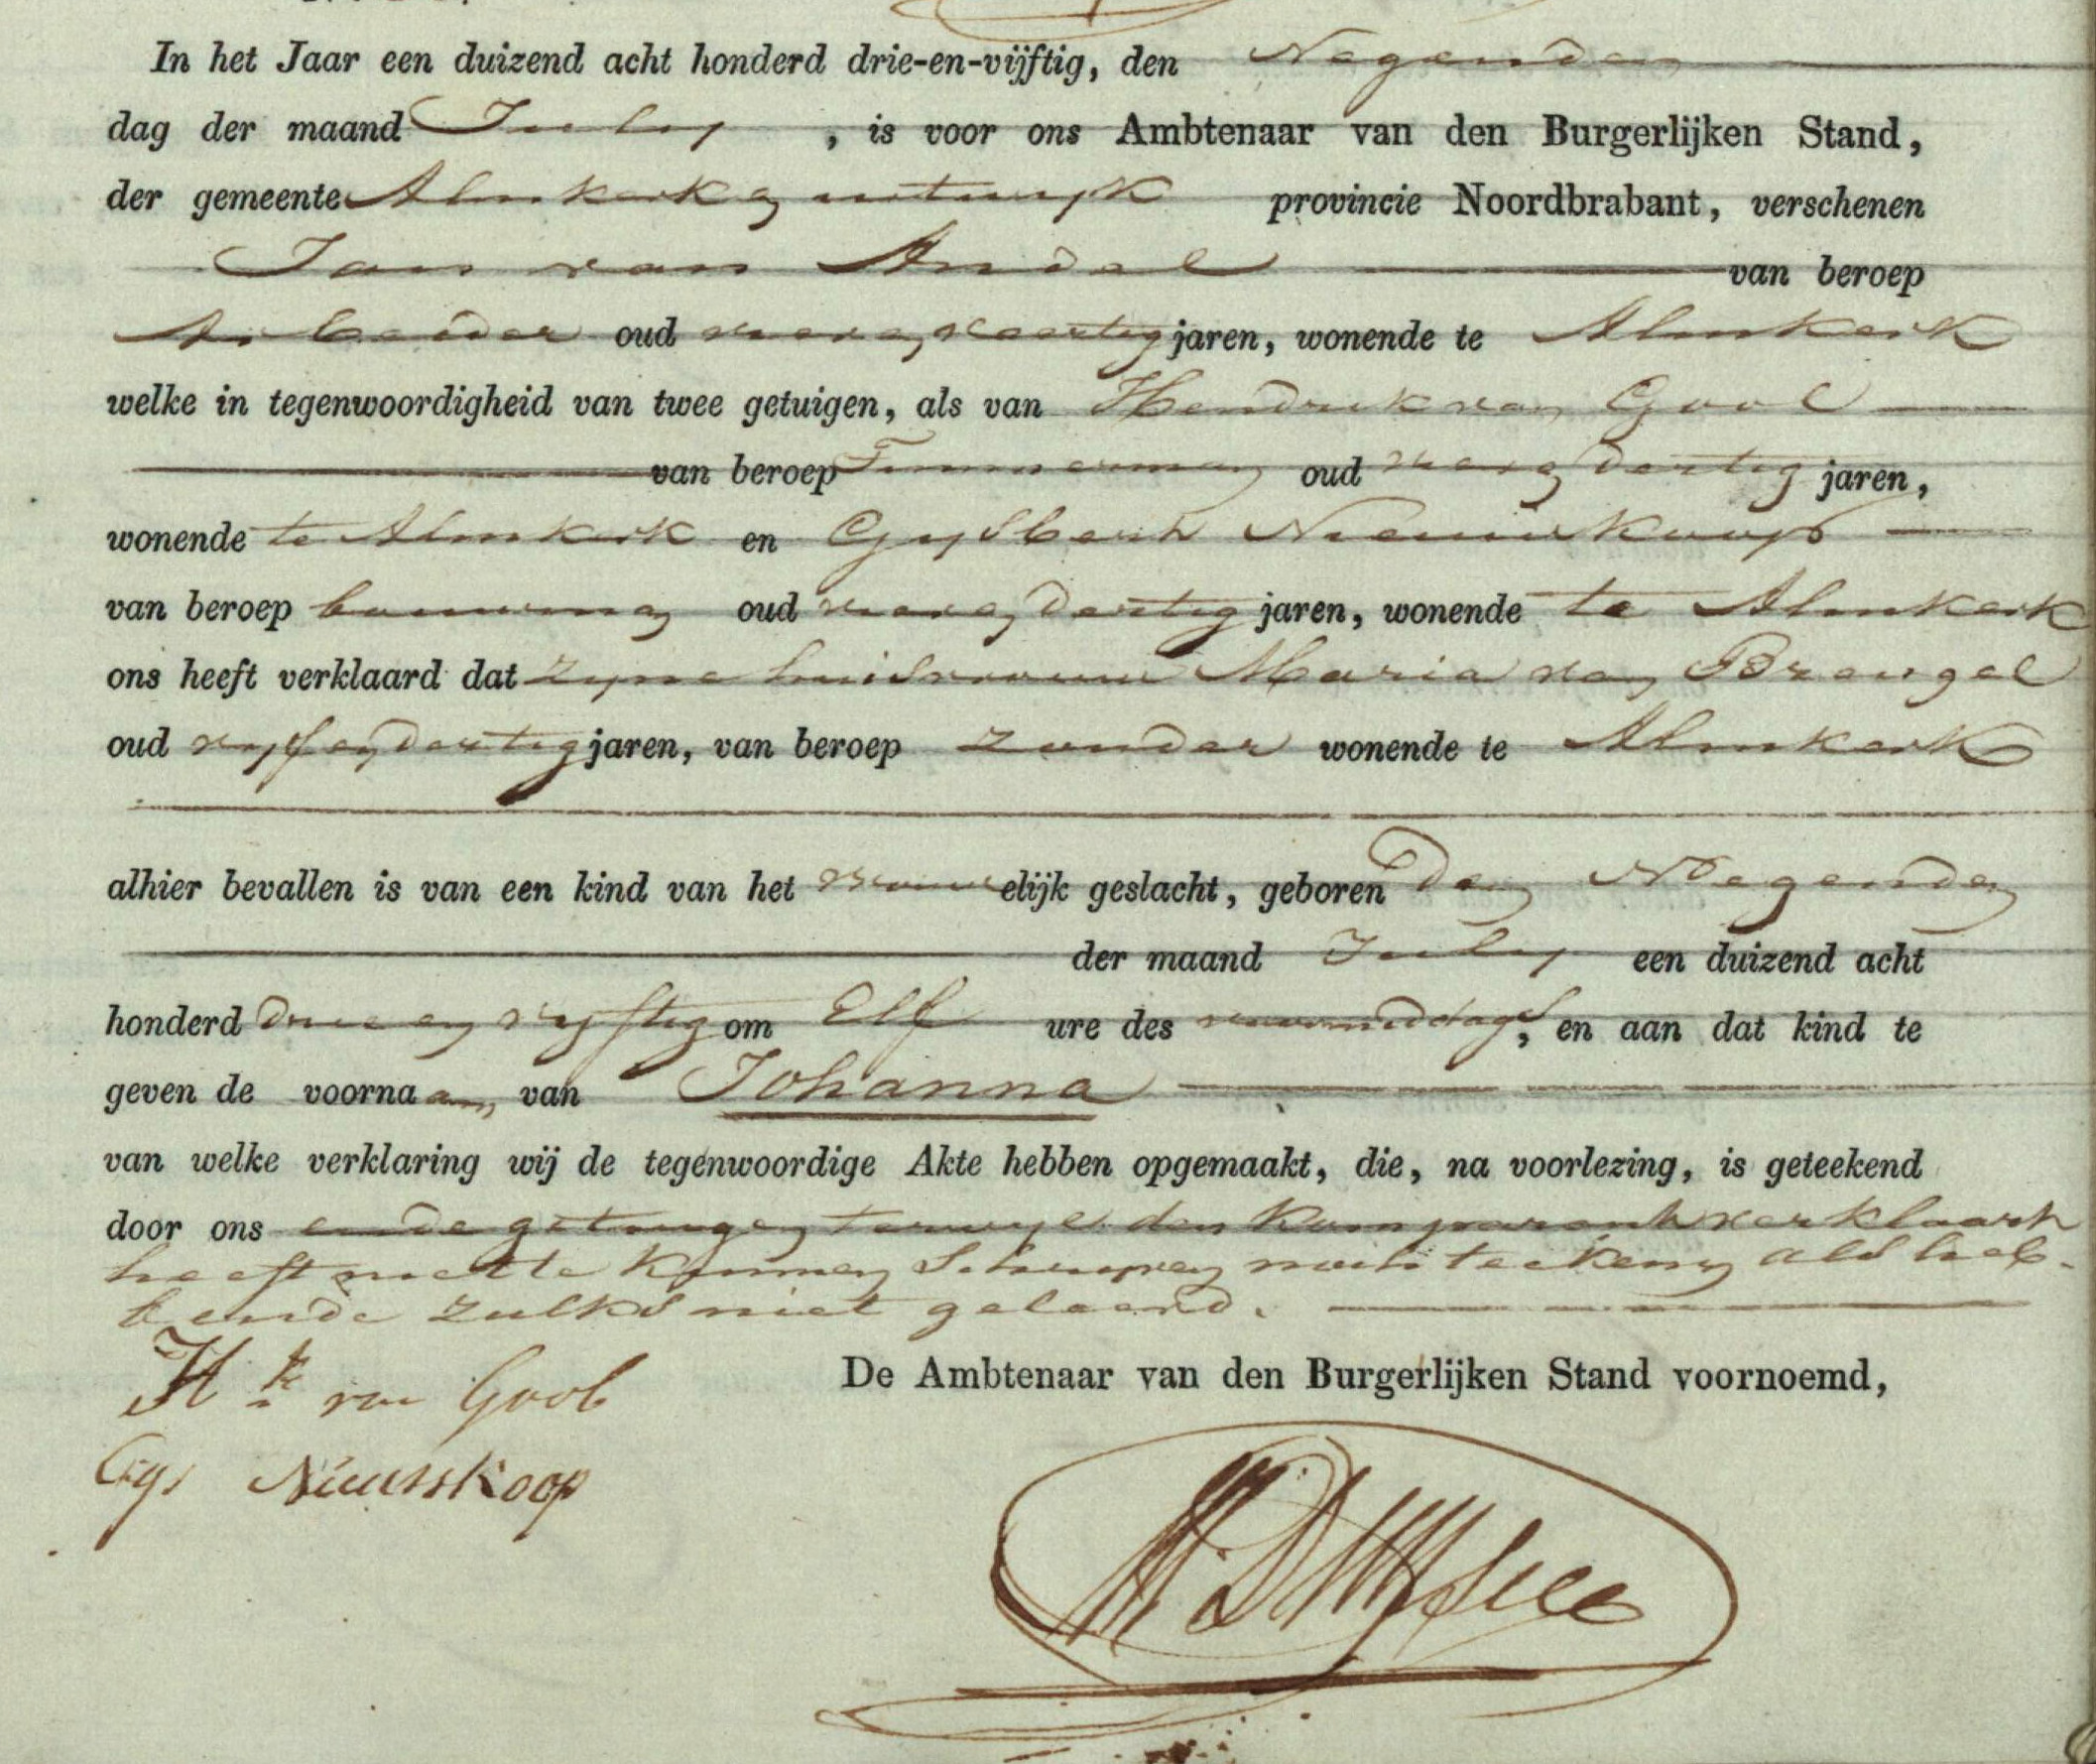 In het Jaar een duizend acht honderd drie-en-vijftig, den Negenden
dag der maand July, is voor ons Ambtenaar van den Burgerlijken Stand,
der gemeente Almkerk en uitwyk provincie Noordbrabant, verschenen
Jan van Andel van beroep
Arbeider oud veertig jaren, wonende te Almkerk
welke in tegenwoordigheid van twee getuigen, als van Hendrik van Gool
van beroep Timmerman oud dertig jaren,
wonende te Almkerk en Gysbert Nieuwkoop
van beroep bouwman oud dertig jaren, wonende te Almkerk
ons heeft verklaard dat zyne huisvrouw Maria van Brengel
oud vyf en dertig jaren, van beroep zonder wonende te Almkerk
alhier bevallen is van een kind van het vrouwelijk geslacht, geboren den Negenden
der maand July een duizend acht
honderd drie en vyftig om Elf ure des voormiddags, en aan dat kind te
geven de voornaam van Johanna
van welke verklaring wij de tegenwoordige Akte hebben opgemaakt, die, na voorlezing, is geteekend
door ons en de getuigen terwyl den komparant verklaart
heeft niet te kunnen Schryven noch teekenen als heb-
bende zulks niet geleerd.
De Ambtenaar van den Burgerlijken Stand voornoemd,
Hk van Gool
Gys Nieuwkoop